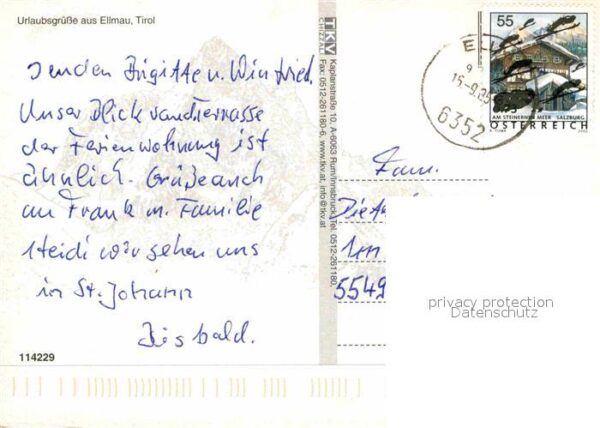 Urlaubsgrüße aus Ellmau, Tirol
senden Birgitte u. Winfried.
Unser Blick von d. Terrasse
der Ferienwohnung ist
ähnlich. Grüße auch
an Frank m. Familie
Heidi wir sehen uns
in St. Johann
Bis bald.
114229
TKV
CHIZZALI
Kaplanstraße 10, A-6063 Rum/Innsbruck, Tel. 0512-261180,
Fax: 0512-261180-6, www.tkv.at, info@tkv.at
55
AM STEINERNEN MEER SALZBURG
ÖSTERREICH
6352
Fam.
5549
privacy protection
Datenschutz